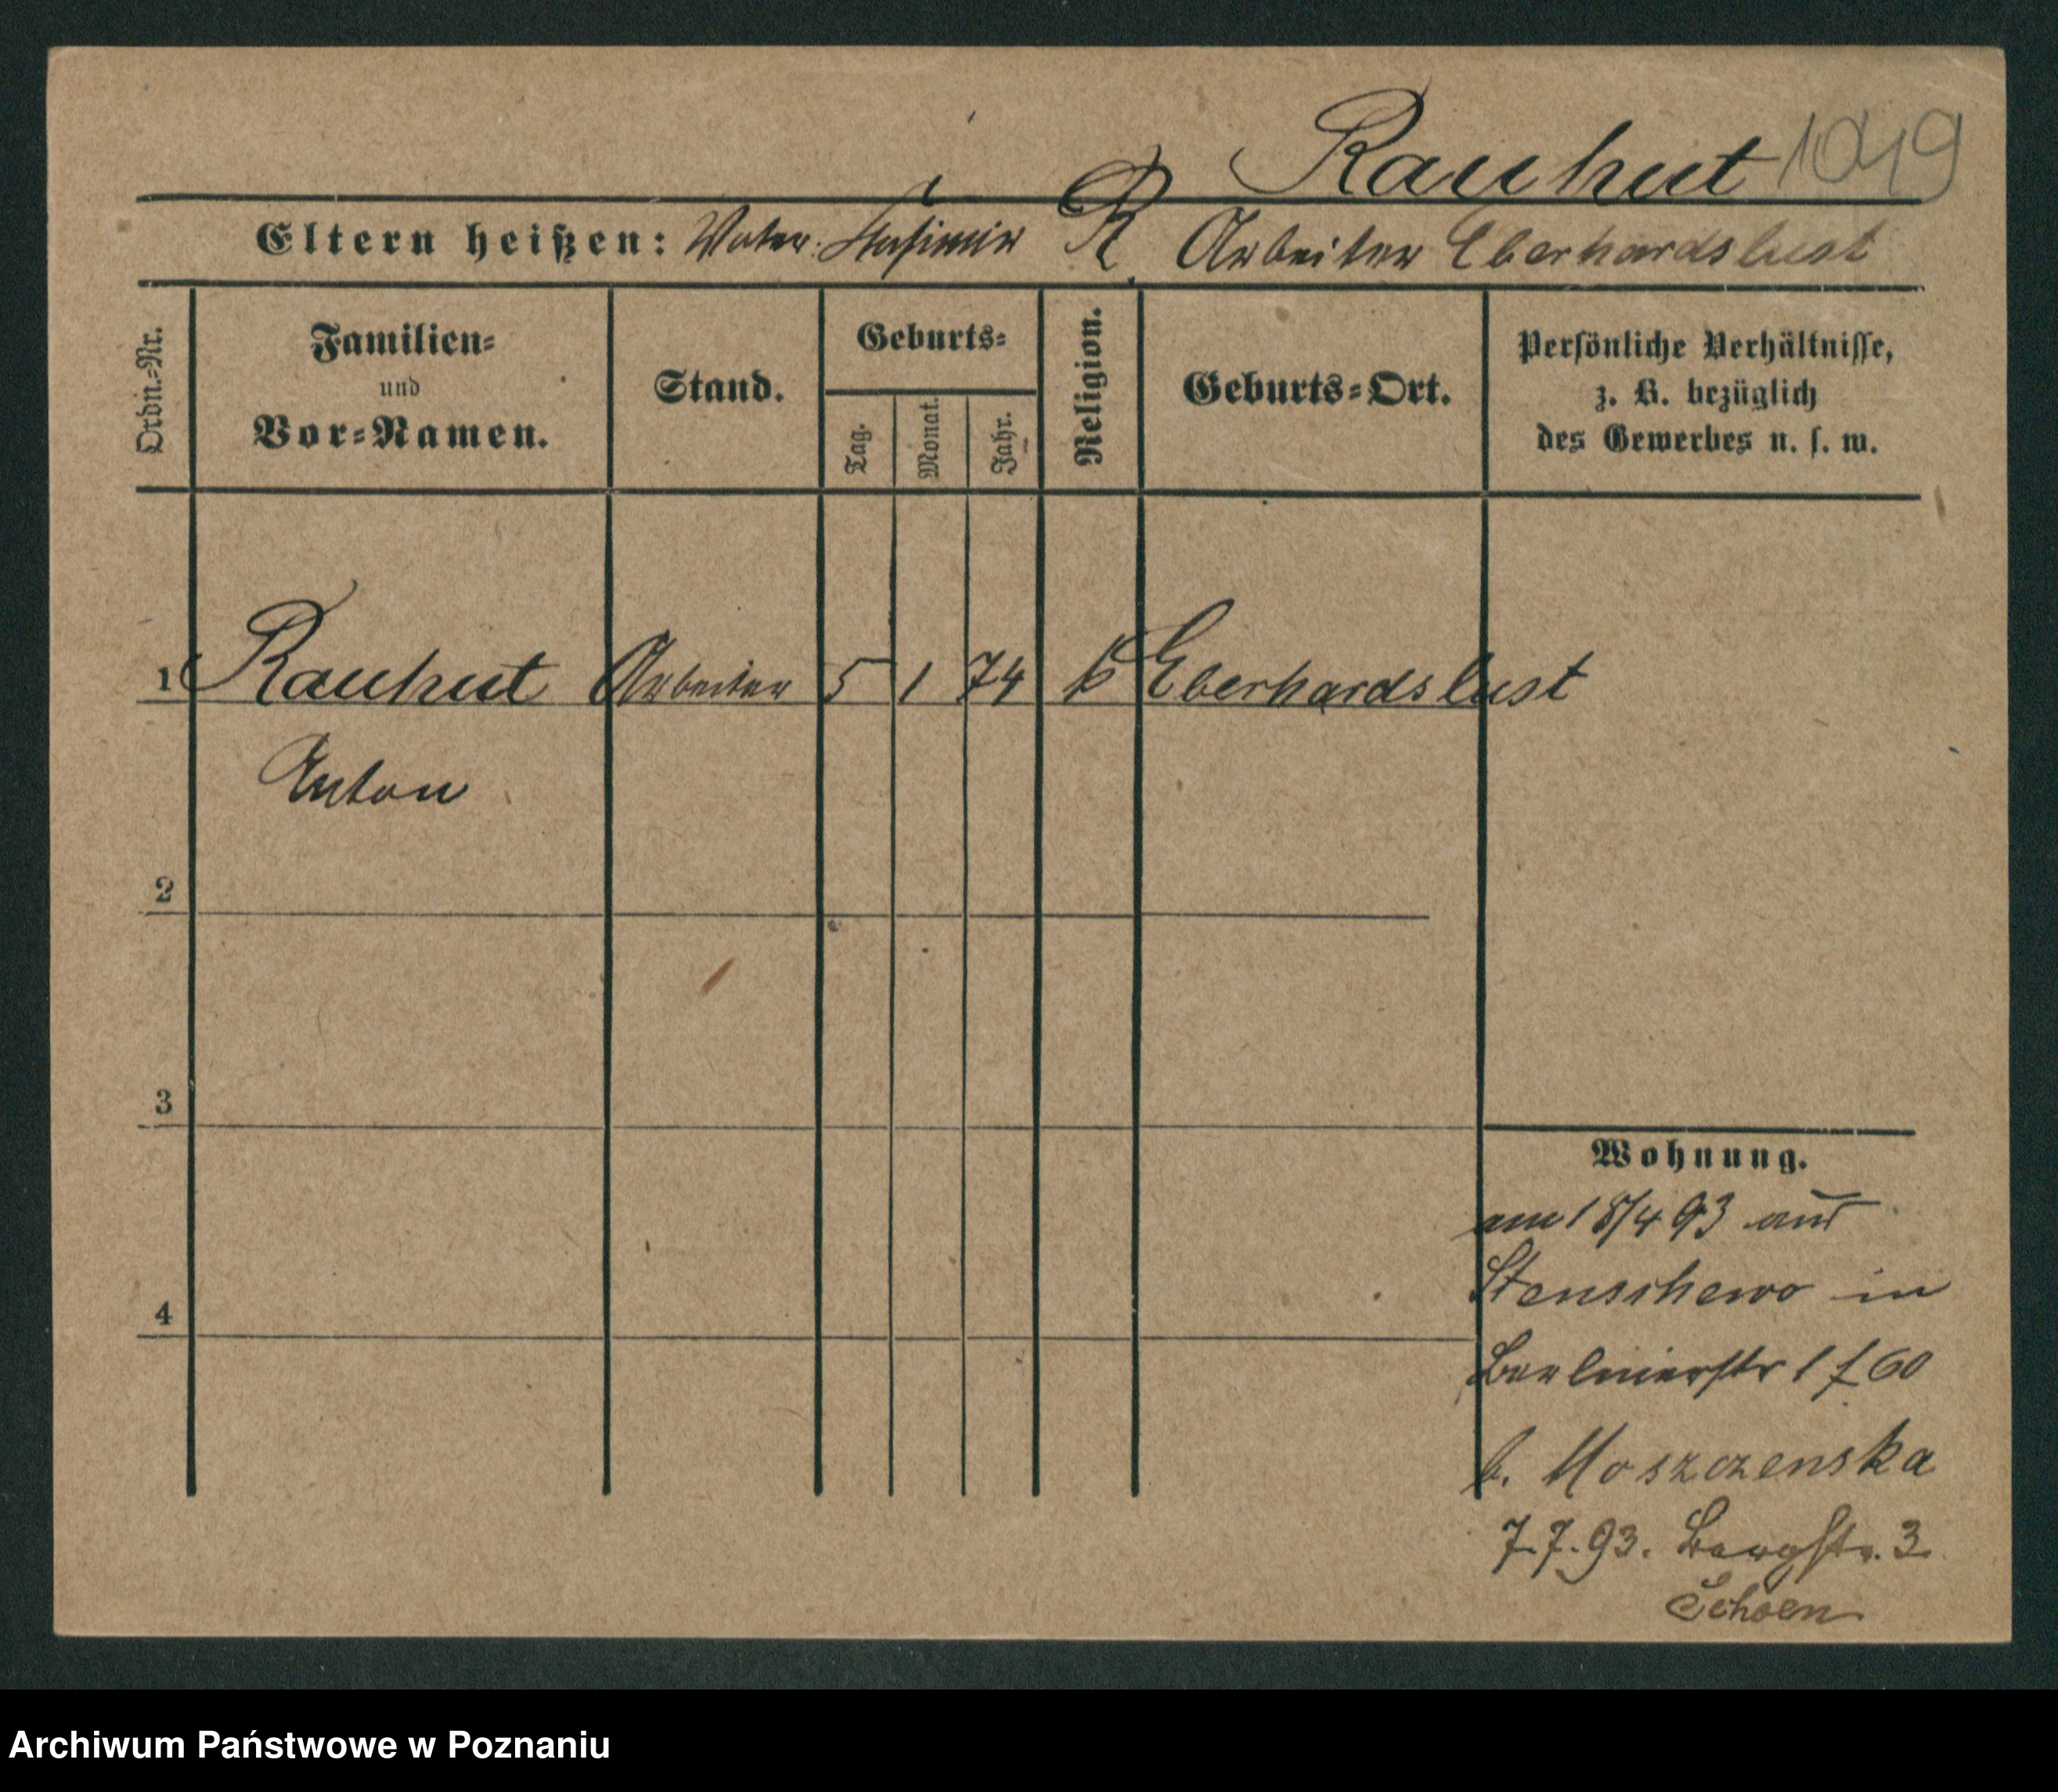 Rauhut 1049
Eltern heißen: Vater: Kasimir R. Arbeiter Eberhardslust
Ordin.-Nr.
Familien-
und
Vor-Namen.
Stand.
Geburts-
Tag.
Monat.
Jahr.
Religion.
Geburts-Ort.
Persönliche Verhältnisse,
z. B. bezüglich
des Gewerbes u. s. w.
1 Rauhut Arbeiter 5 1 74 K Eberhardslust
Anton
2
3
4
Wohnung.
am 18/4 93 aus
Stenschewo in
Berlinerstr 1 f 60
b. Moszczenska
7.7.93. Bergstr. 3
Schoen
Archiwum Państwowe w Poznaniu